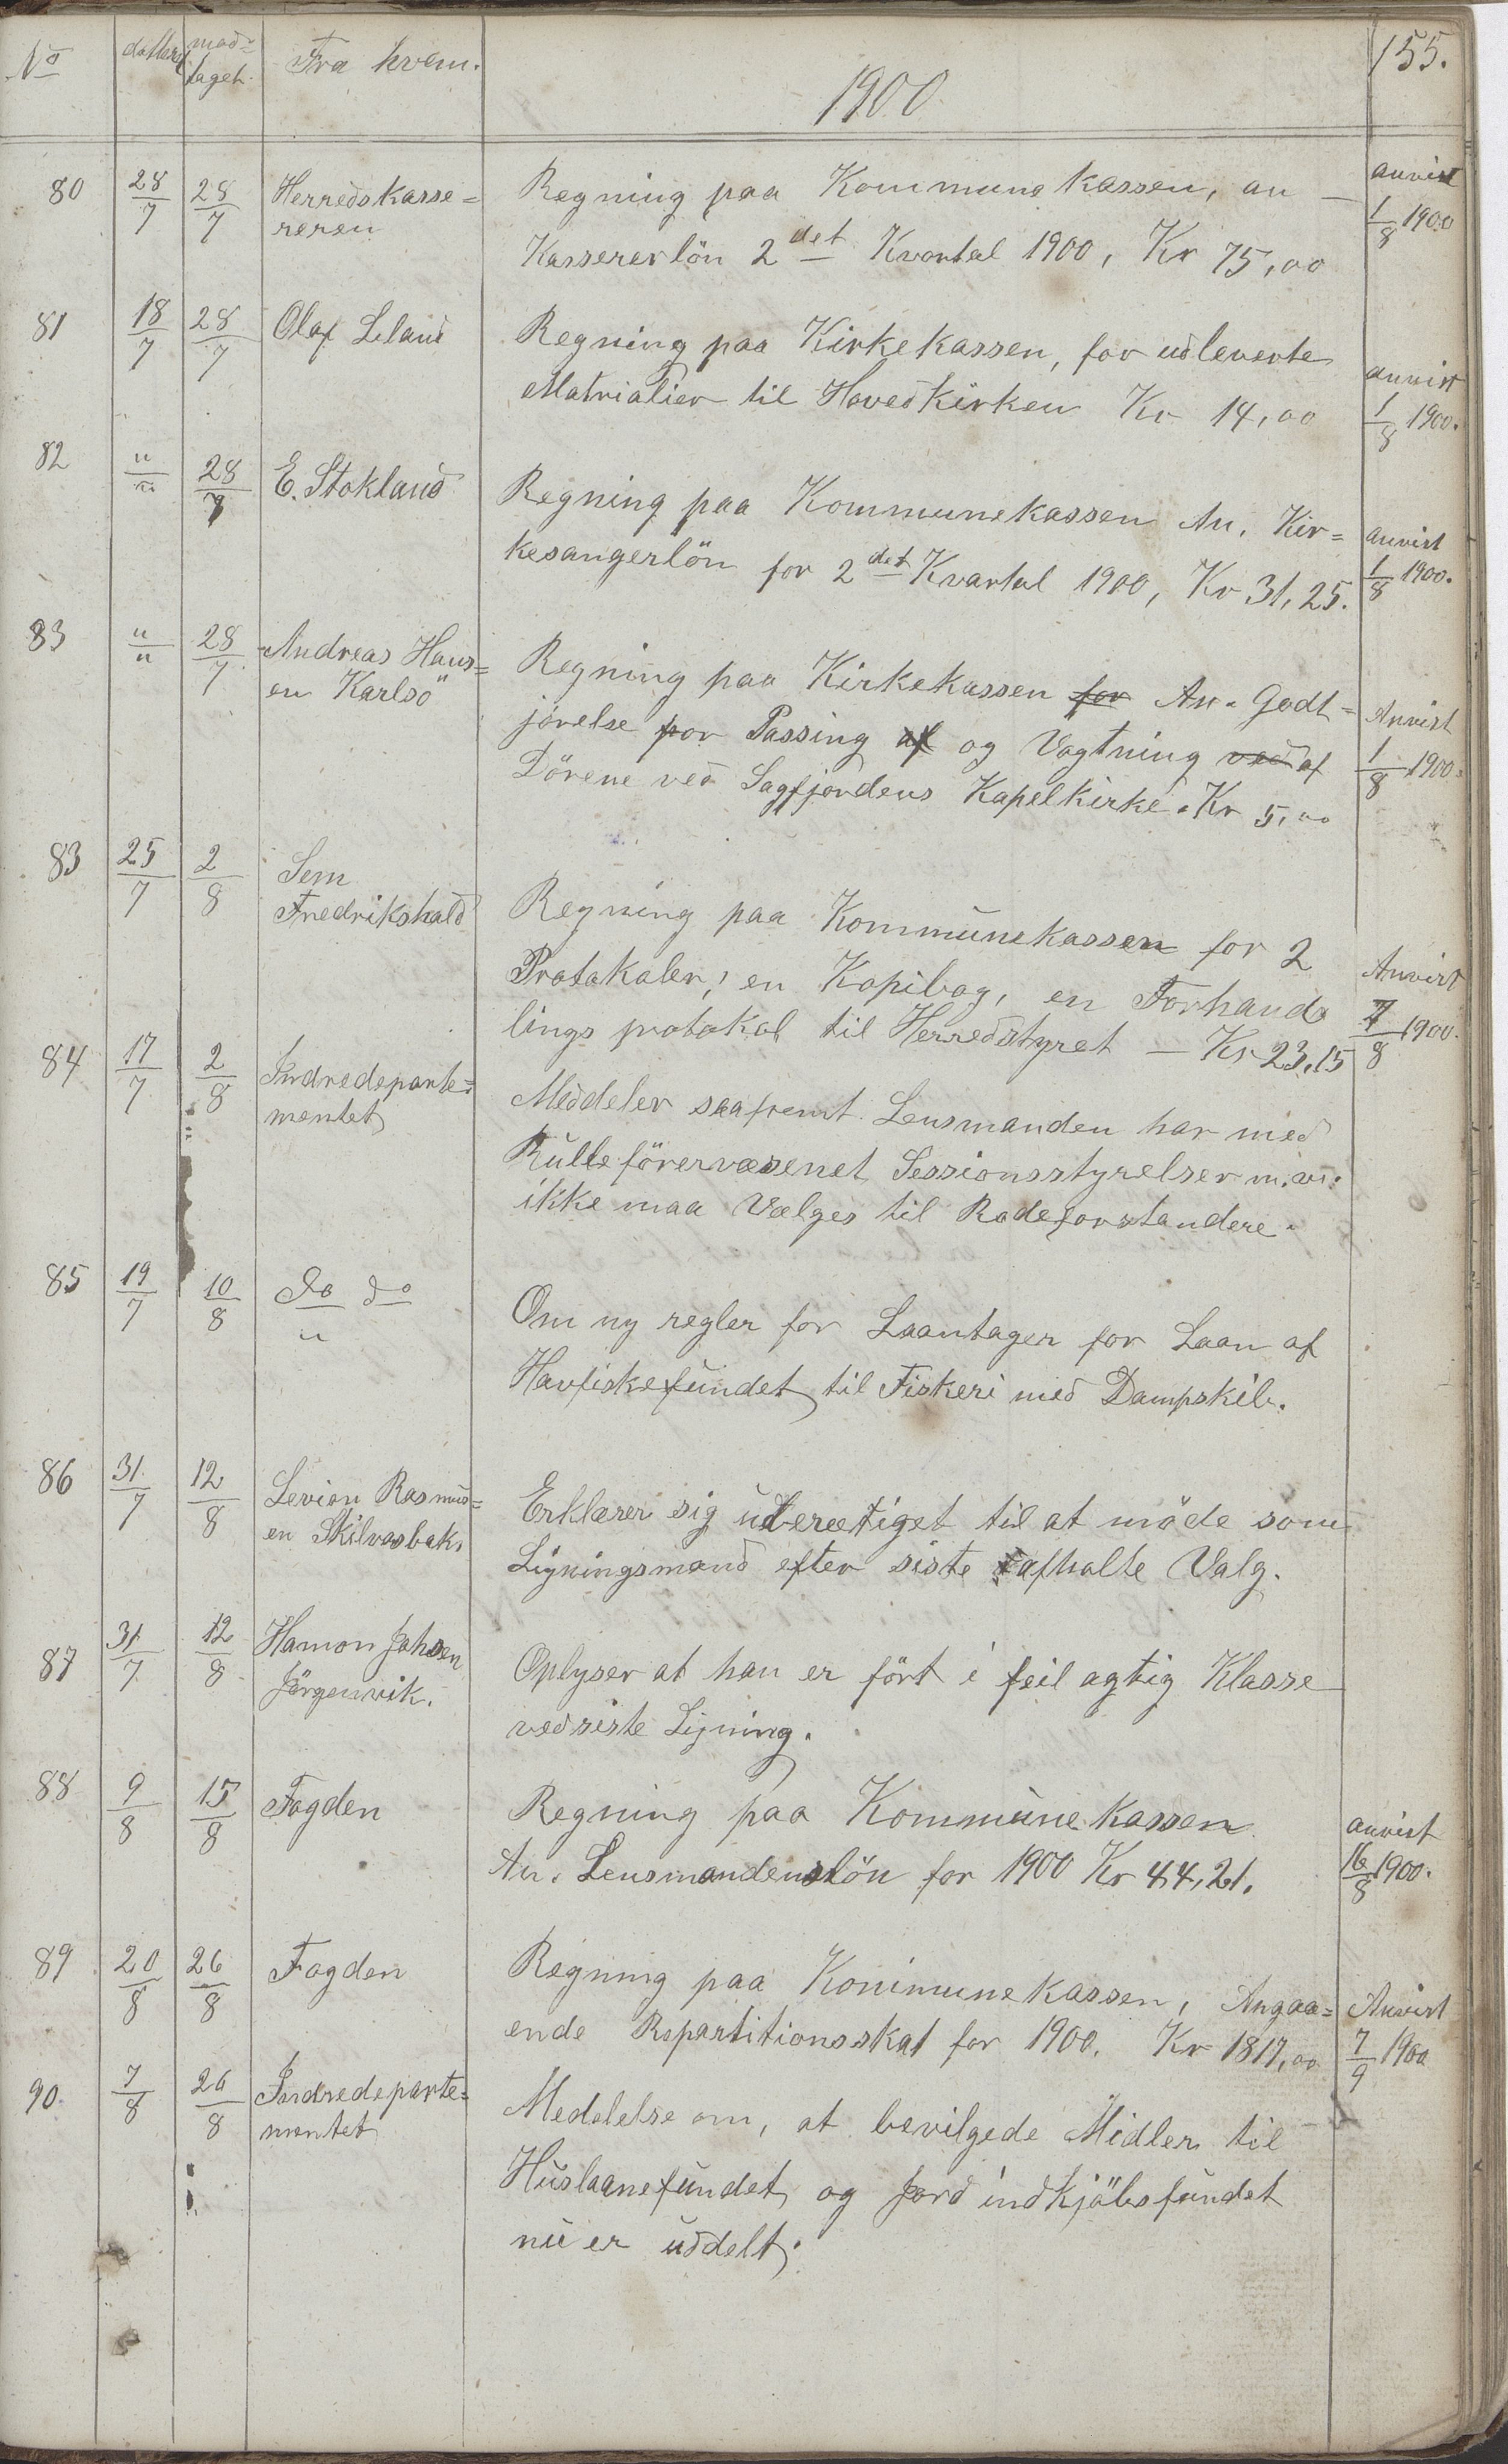 No datteret mod= taget. Fra hvem. 1900 155.
80 28/7 28/7 Herredskasse= Regning paa Kommunekassen, an — anvist
reren Kassererlön 2det Kvartal 1900, Kr 75,00 1/8 1900
81 18/7 28/7 Olaf Leland Regning paa Kirkekassen, for udleverte anvist
Matrialier til Hovedkirken Kr 14,00 1/8 1900.
82 "/" 28/7 E. Stokland Regning paa Kommunekassen An. Kir= anvist
kesangerlön for 2det Kvartal 1900, Kr 31,25. 1/8 1900.
83 "/" 28/7 Andreas Hans= Regning paa Kirkekassen for An. Godt= Anvist
en Karlsö jörelse for Passing af og Vagtning ved af 1/8 1900.
Dörene ved Sagfjordens Kapelkirke. Kr 5,00
83 25/7 2/8 Sem
Fredrikshald Regning paa Kommunekassen for 2 Anvist
Protokoler, en Kopibog, en Forhand 7/8 1900.
lings protokol til Herredstyret — Kr 23,15
84 17/7 2/8 Indredeparte= Meddeler saafremt Lensmanden har med
mentet Rulleförervæsenet Sessionsstyrelser m.v.
ikke maa Vælges til Rodeforstandere.
85 19/7 10/8 Do do Om ny regler for Laantager for Laan af
" Havfiskefundet til Fiskeri med Dampskib.
86 31/7 12/8 Levion Rasmus= Erklærer sig uberetiget til at möde som
en Skilvasbak. Ligningsmand efter siste afholte Valg.
87 31/7 12/8 Hamon Johsen Oplyser at han er fört i feil agtig Klasse
Jörgenvik. ved siste Ligning.
88 9/8 15/8 Fogden Regning paa Kommunekassen anvist
An. Lensmandenslön for 1900 Kr 44,21. 16/8 1900.
89 20/8 26/8 Fogden Regning paa Kommunekassen, Angaa= Anvist
ende Repartitionsskat for 1900. Kr 1817,00 7/9 1900
90. 7/8 26/8 Indredeparte= Medelelse om, at bevilgede Midler til
mentet Huslaanefundet og Jord indkjöbsfundet
nu er uddelt.